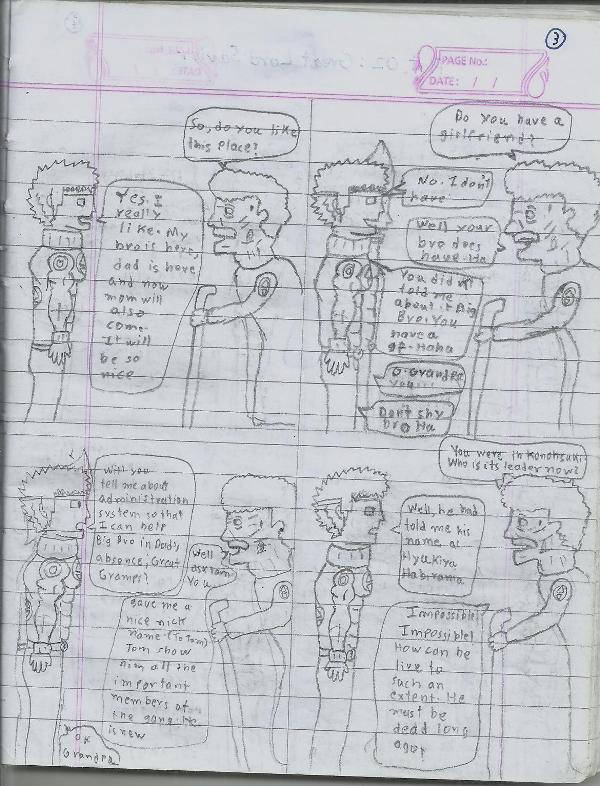 3
PAGE No.:
DATE: / /
So, do you like
this Place?
Yes. I
really
like. My
bro is here,
dad is here
and now
mom will
also
come.
It will
be so
nice
Do you have a
girlfriend?
No. I don't
have
Well your
bro does
have. Ha
You didn't
told me
about it Big
Bro. You
have a
gf. Haha
O.Grandpa
you....
Don't shy
bro Ha
Will you
tell me about
administration
system so that
I can help
Big Bro in Dad's
absence, Great
Gramps?
Well
you
gave me a
nice nick
name. (To Tom)
Tom show
him all the
important
members of
the gang. He
is new
OK
Grandpa
You were in
Who is its leader now?
Well, he had
told me his
name as
Hyukiya
Habirama
Impossible!
Impossible!
How can he
live to
such an
extent. He
must be
dead long
ago!